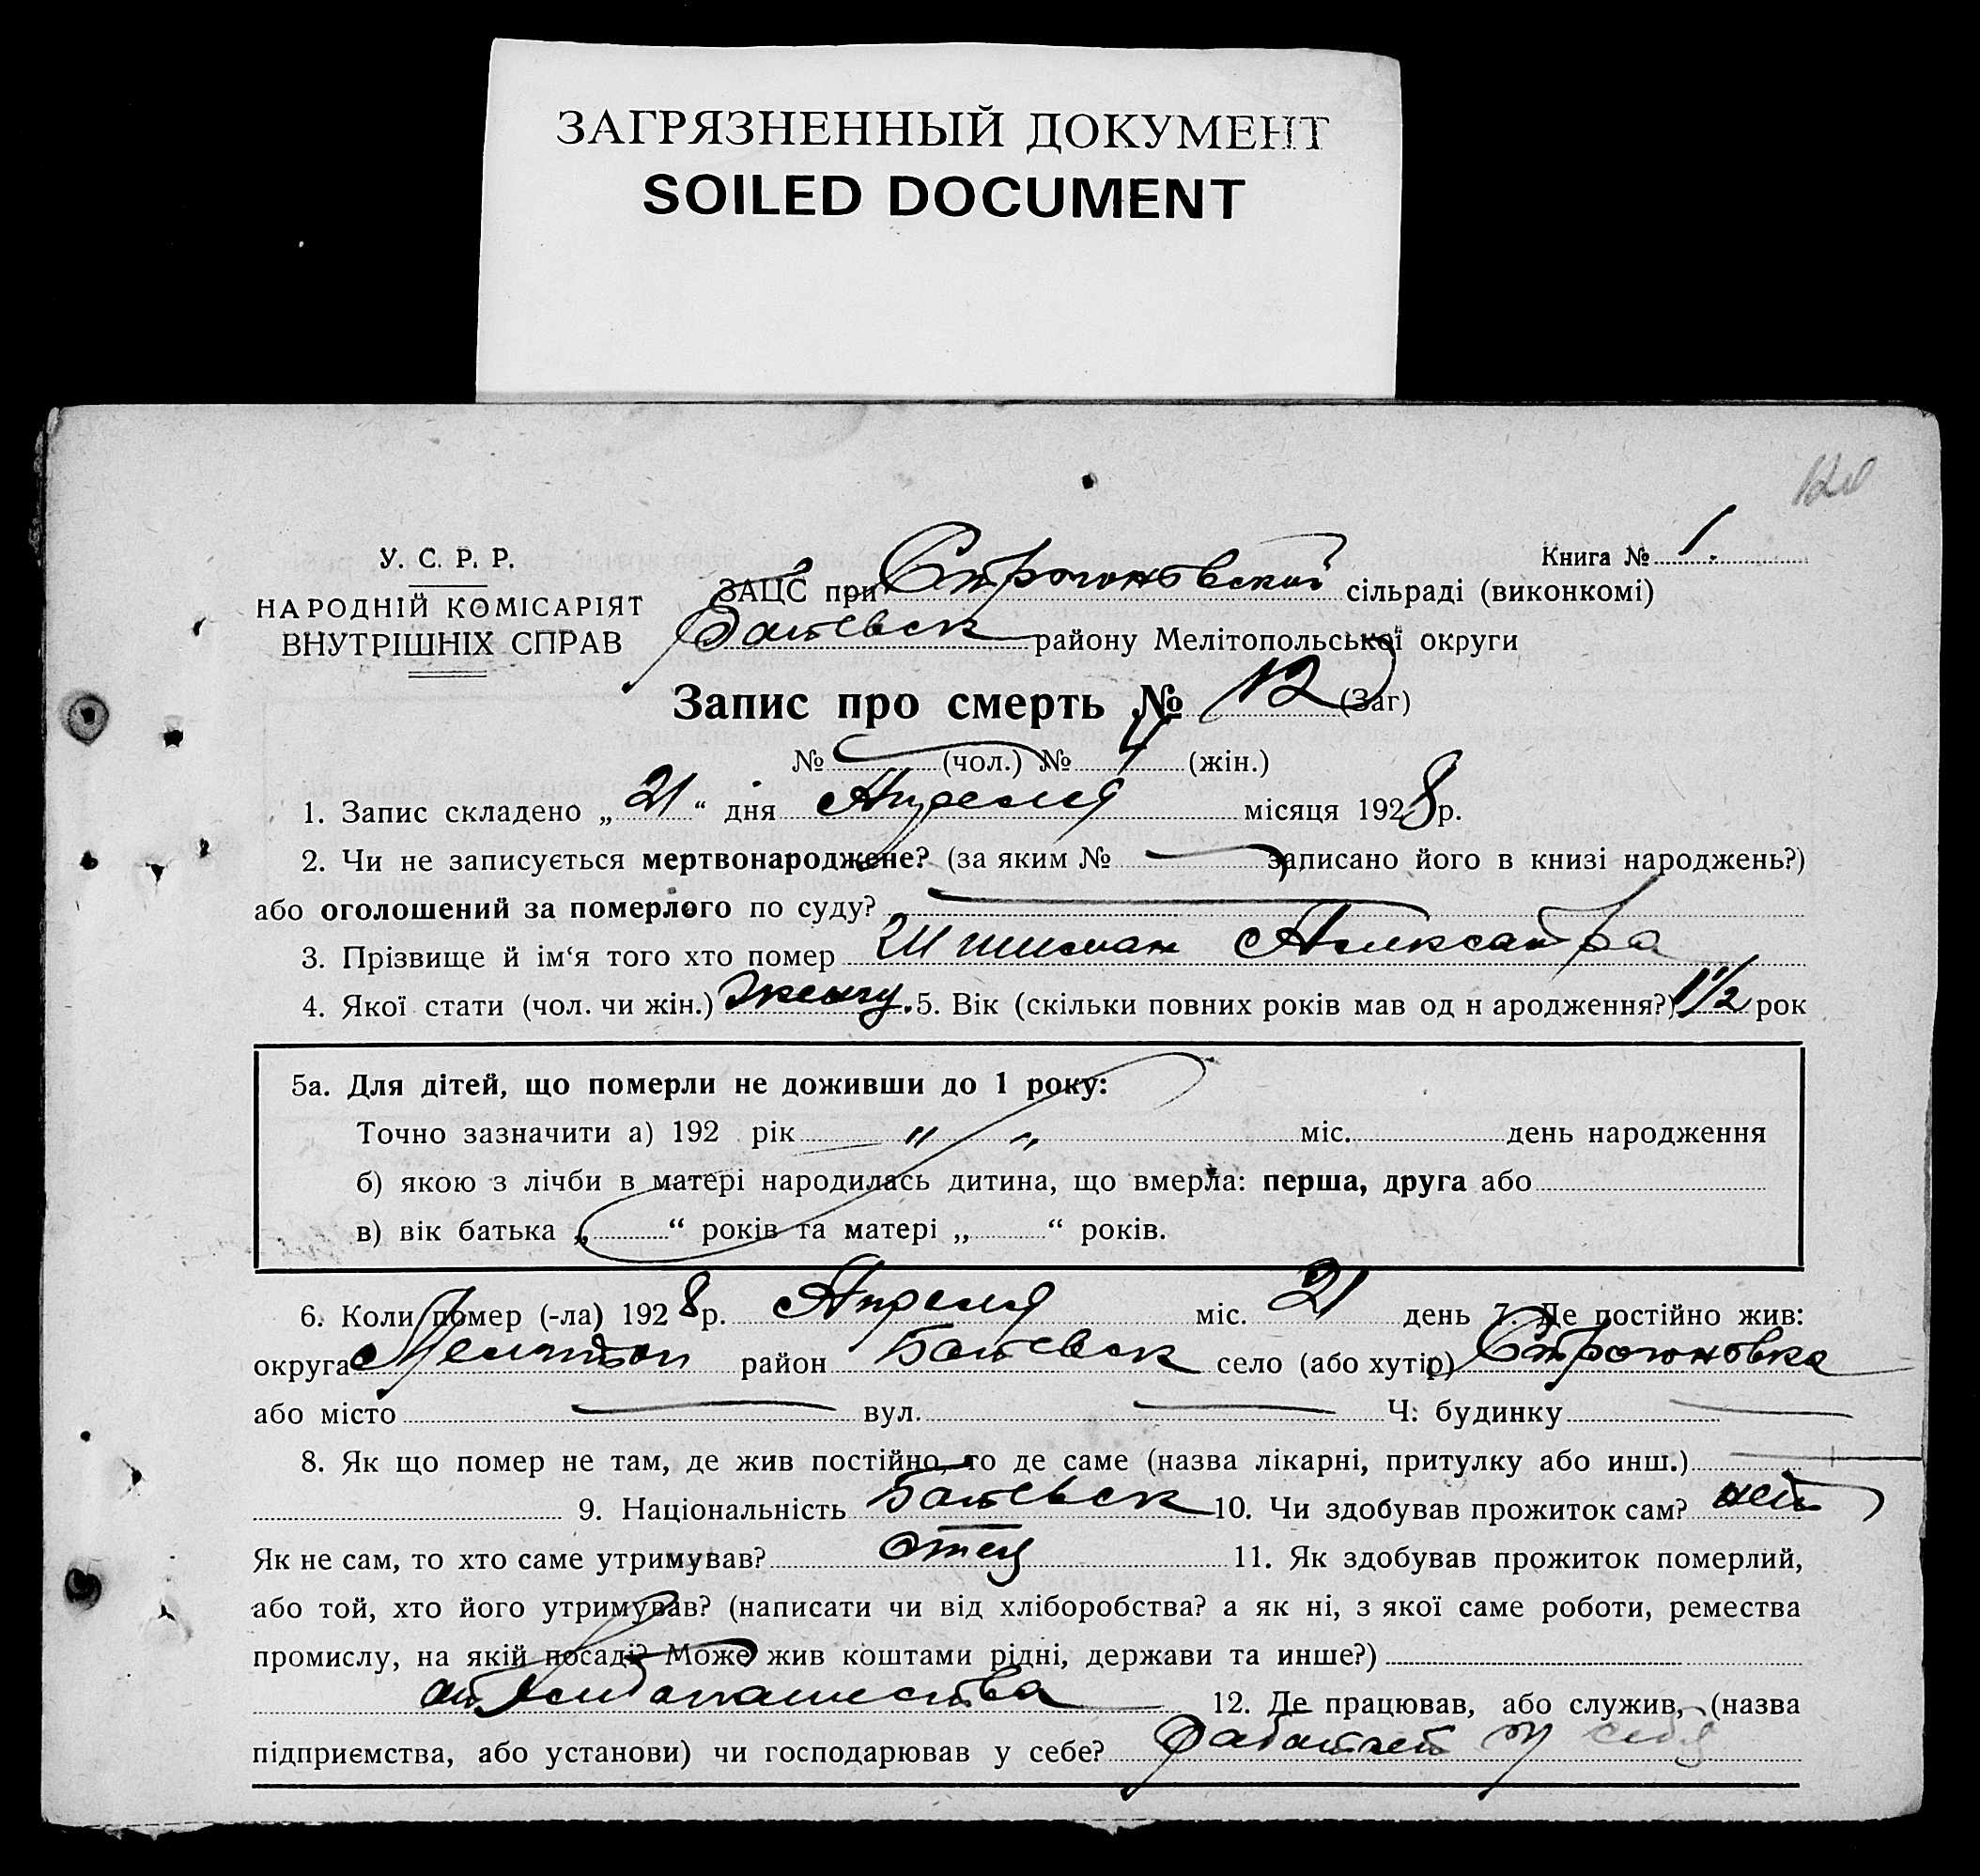 ЗАГРЯЗНЕННЫЙ ДОКУМЕНТ
SOILED DOCUMENT
У. С. Р. Р.
НАРОДНІЙ КОМІСАРІЯТ
ВНУТРІШНІХ СПРАВ
Книга № 1.
ЗАЦС при Строгоновской сільраді (виконкомі)
району Мелітопольської округи
Запис про смерть № 12 (Заг)
№ (чол.) № 4 (жін.)
1. Запис складено „ 21 “ дня Апреля місяця 1928 р.
2. Чи не записується мертвонароджене? (за яким № записано його в книзі народжень?)
або оголошений за померлого по суду?
3. Прізвище й ім‘я того хто помер Шишман Александра
4. Якої стати (чол. чи жін.) 5. Вік (скільки повних років мав од н ародження?) 1 1/2 рок
5а. Для дітей, що померли не доживши до 1 року:
Точно зазначити а) 192 рік " " міс. день народження
б) якою з лічби в матері народилась дитина, що вмерла: перша, друга або
в) вік батька „ “ років та матері „ “ років.
6. Коли помер (-ла) 1928 р. Апреля міс. 21 день 7. Де постійно жив:
округа район Ботевск село (або хутір) Строгоновка
або місто вул. Ч: будинку
8. Як що помер не там, де жив постійно, то де саме (назва лікарні, притулку або инш.)
9. Національність Ботевск 10. Чи здобував прожиток сам? нет
Як не сам, то хто саме утримував? отец 11. Як здобував прожиток померлий,
або той, хто його утримував? (написати чи від хліборобства? а як ні, з якої саме роботи, ремества
промислу, на якій посаді? Може жив коштами рідні, держави та инше?)
от хлебопашества 12. Де працював, або служив, (назва
підприємства, або установи) чи господарював у себе? работает у себя